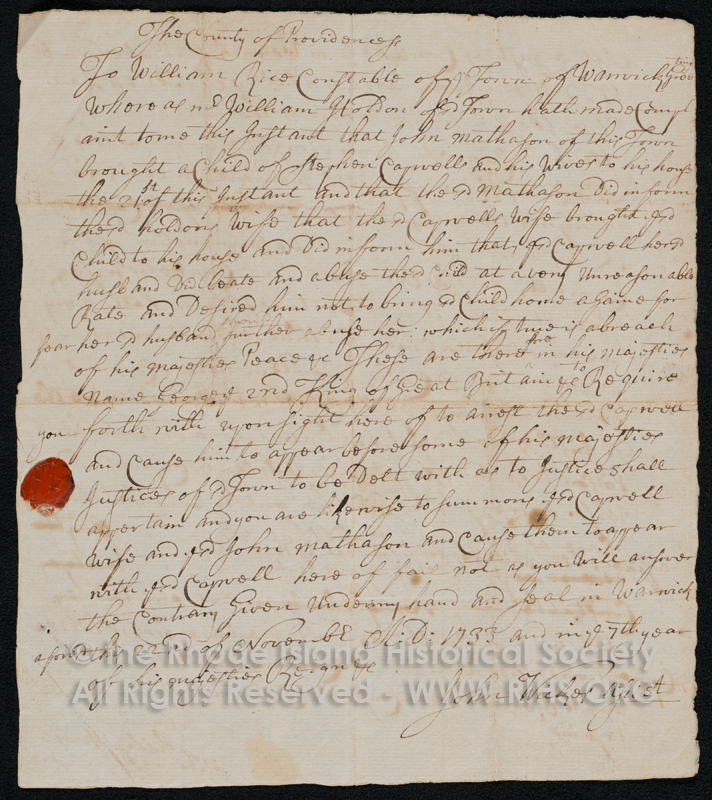 The County of Providence ss
To William Rice Constable of ye Town of Warwick Greeting
Whereas mr William Holdon of sd Town hath made Compl
aint to me this Instant that John Mathason of this Town
brought a Child of Stephen Capwells and his Wives to his house
the 21st of this Instant and that the sd Mathason Did inform
the sd holdons Wife that the sd Capwells Wife brought ye sd
Child to his house and Did inform him that ye sd Capwell her sd
husband Did beate and abuse the sd Child at a very Unreasonable
Rate and Desired him not to bring sd Child home againe for
fear her sd husband should further abuse her: which if true is a breach
of his majesties Peace &c These are therefore in his majesties
Name George ye 2nd King of Great Britain &c to Require
you forth with upon sight here of to arrest the sd Capwell
and Cause him to appear before some of his majesties
Justices of sd Town to be Delt with as to Justice shall
appertain and you are likewise to summons ye sd Capwell
Wife and ye sd John Mathason and Cause them to appear
with ye sd Capwell here of fail not as you will answer
the Contrary Given Under my hand and seal in Warwick
aforesd this 22nd of Novembr A:D: 1733 and in ye 7th year
of his majesties Reign &c
John Wickes Just 
© The Rhode Island Historical Society
All Rights Reserved - WWW.RIHS.ORG